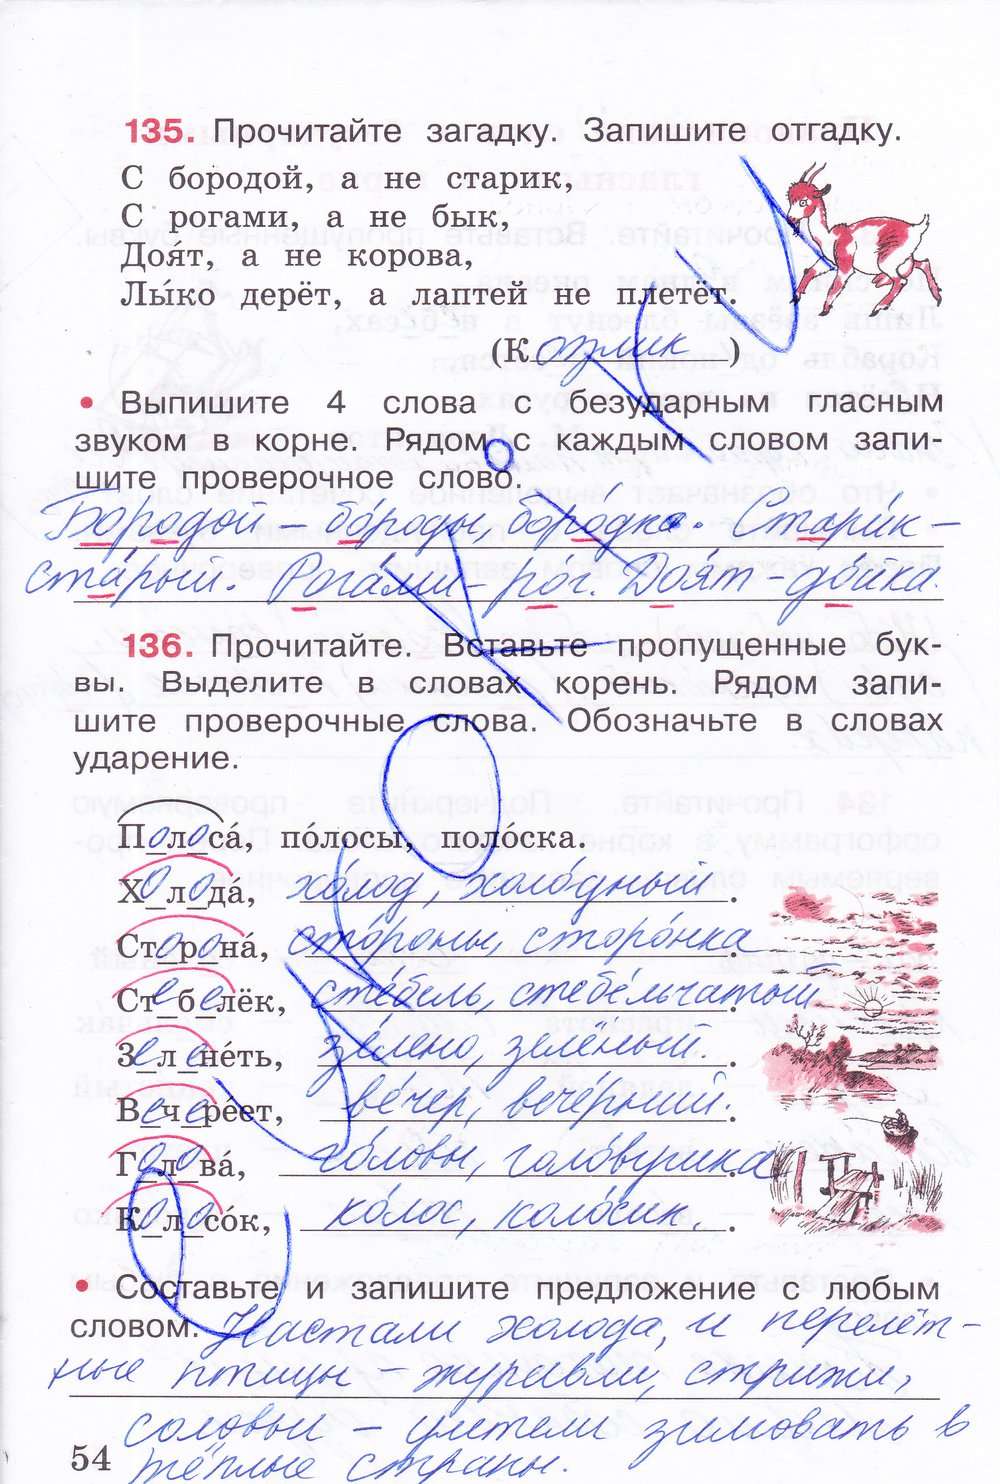 135. Прочитайте загадку. Запишите отгадку.
С бородой, а не старик,
С рогами, а не бык,
Доя́т, а не корова,
Лы́ко дерёт, а лаптей не плетёт.
(Козлик)
• Выпишите 4 слова с безударным гласным
звуком в корне. Рядом с каждым словом запи-
шите проверочное слово.
Бородой – бо́роды, боро́дка. Стари́к –
ста́рый. Рога́ми – рог. Доя́т – до́йка.
136. Прочитайте. Вставьте пропущенные бук-
вы. Выделите в словах корень. Рядом запи-
шите проверочные слова. Обозначьте в словах
ударение.
Полоса́, по́лосы, поло́ска.
Холода́, хо́лод, холо́дный.
Сторона́, сто́роны, сторо́нка
Стебелёк, сте́бель, стебе́льчатый
Зелене́ть, зе́лено, зелёный.
Вечере́ет, ве́чер, вече́рний.
Голова́, го́ловы, голо́вушка.
Колосо́к, ко́лос, коло́сик.
• Составьте и запишите предложение с любым
словом. Настали холода, и перелёт-
ные птицы – журавли, стрижи,
соловьи – улетели зимовать в
54 тёплые страны.